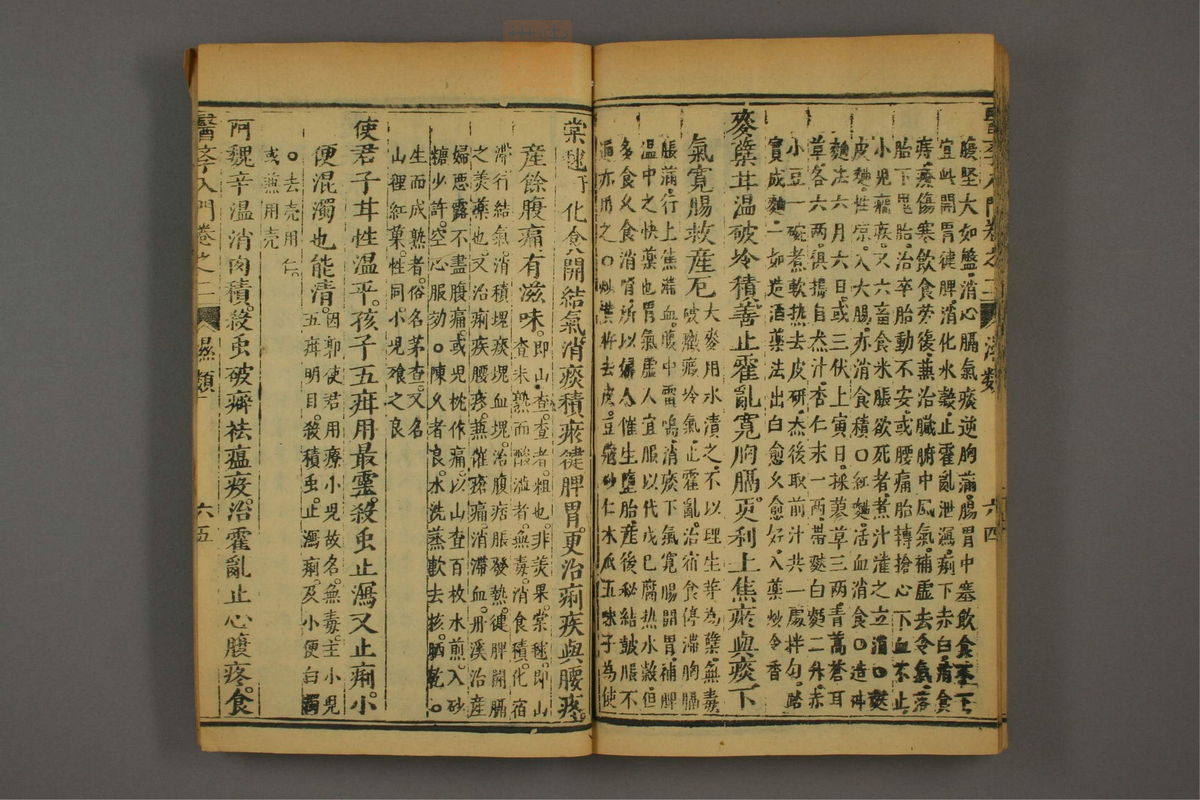 醫學入門卷之二 濕類 六四
腹堅大如盤消心膈氣痰逆胸滿腸胃中塞飲食不下
宜此開胃健脾消化水穀止霍亂泄瀉痢下赤白消食
痔瘻傷寒飲食勞後兼治臟腑中風氣補虛去冷氣落
胎下鬼胎治卒胎動不安或腰痛胎轉搶心下血不止
小兒癎疾又六畜食米脹欲死者煮汁灌之立消〇麩
皮麵性凉入大腸亦消食積〇紅麯活血消食〇造神
麯法六月六日或三伏上寅日採蓼草三兩青蒿蒼耳
草各六兩俱搗自然汁杏仁末一兩帶麩白麵二升赤
小豆一碗煮軟熱去皮研然後取前汁共一處拌勻踏
實成麯一如造酒藥法出白愈久愈好入藥炒令香
麥蘗甘溫破冷積善止霍亂寬胸膈更利上焦瘀與痰下
氣寬腸救產厄大麥用水漬之不以理生芽為蘗無毒
破癥癖冷氣止霍亂治宿食停滯胸膈
脹滿行上焦滯血腹中雷鳴消痰下氣寬腸開胃補脾
溫中之快藥也胃氣虛人宜服以代戊巳腐熱水穀但
多食久食消腎所以婦人催生墮胎產後秘結鼓脹不
通亦用之〇炒黃杵去皮豆蔻砂仁木瓜五味子為使
棠毬子化食開結氣消痰積瘀健脾胃更治痢疾與腰疼
產餘腹痛有滋味即山查者粗也非羙果棠毬即山
查未熟而酸澁者無毒消食積化宿
滯行結氣消積塊痰塊血塊治腹痞脹發熱健脾開膈
之羙藥也又治痢疾腰疼兼催瘡痛消滯血丹溪治產
婦惡露不盡腹痛或兒枕作痛以山查百枚水煎入砂
糖少許空心服効〇陳久者良水洗蒸軟去核晒乾〇
生而成熟者俗名茅查又名
山裡紅菓性同小兒飧之良
使君子甘性溫平孩子五疳用最靈殺虫止瀉又止痢小
便混濁也能清因郭使君用療小兒故名無毒主小兒
五疳明目殺積虫止瀉痢及小便白濁
〇去壳用仁
或兼用壳
阿魏辛溫消肉積殺虫破癖祛瘟疫治霍亂止心腹疼食
醫學入門卷之二 濕類 六五